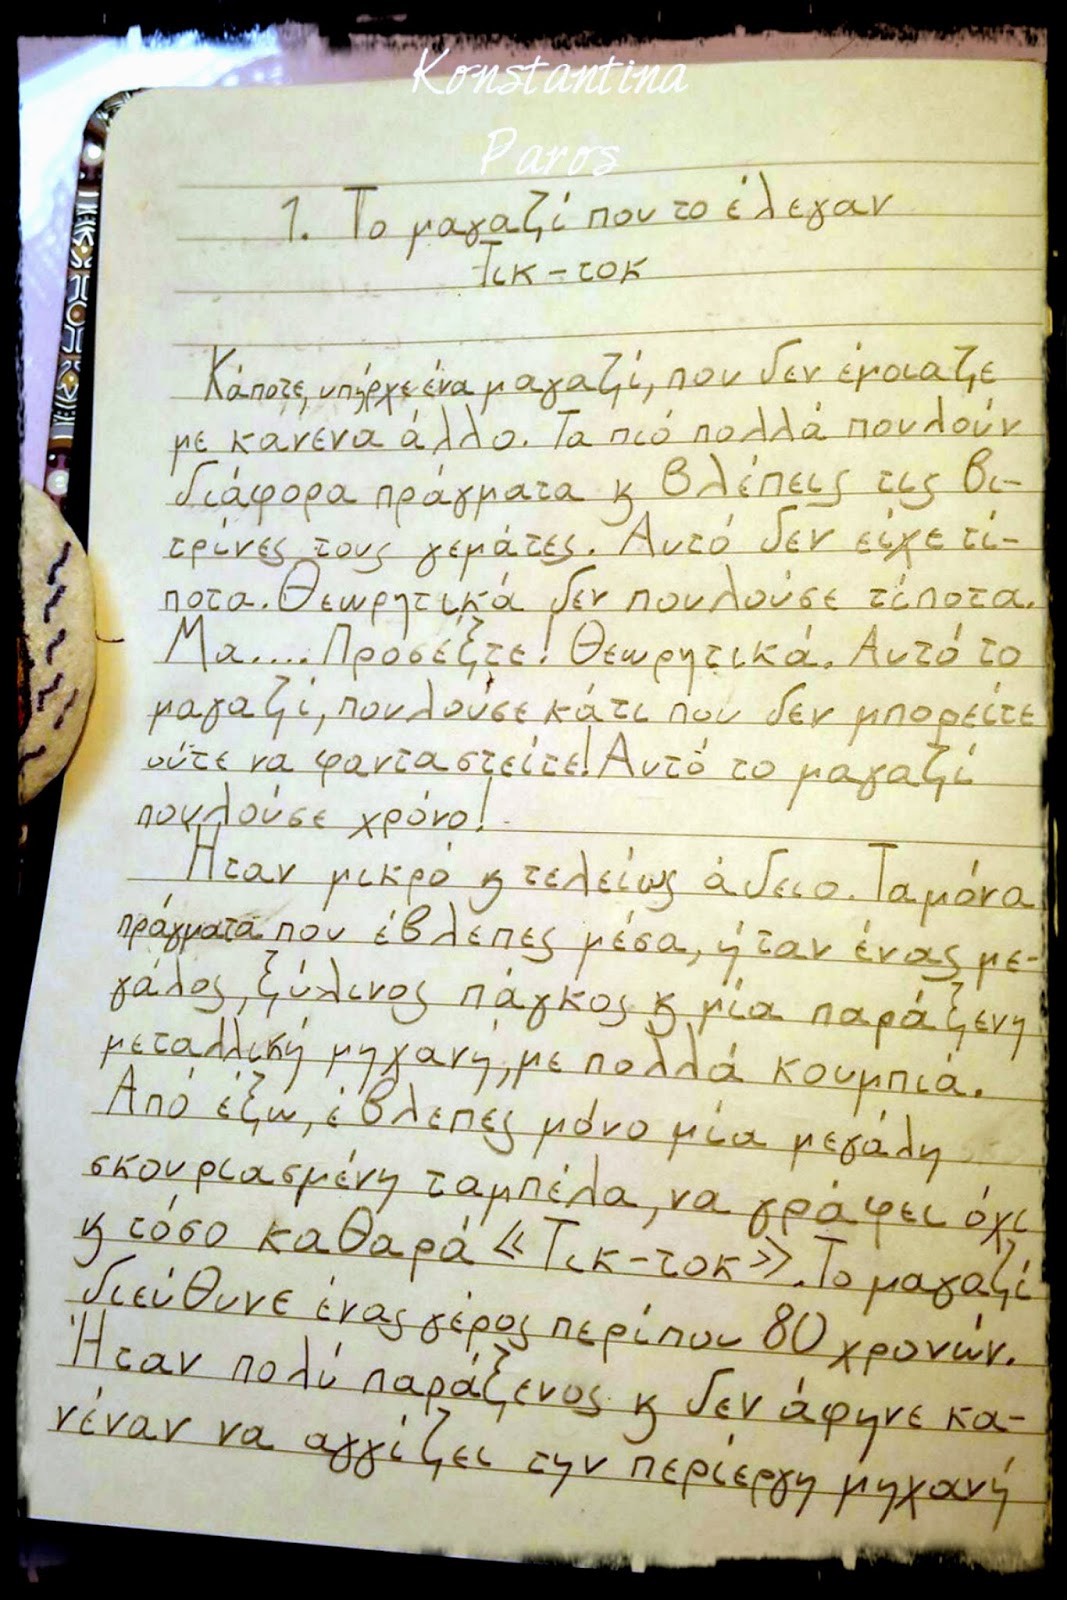 Konstantina
Paros
1. Το μαγαζί που το έλεγαν
Τικ-τοκ
Κάποτε, υπήρχε ένα μαγαζί, που δεν έμοιαζε
με κανένα άλλο. Τα πιό πολλά πουλούν
διάφορα πράγματα ϗ βλέπεις τις βι-
τρίνες τους γεμάτες. Αυτό δεν είχε τί-
ποτα. Θεωρητικά δεν πουλούσε τίποτα.
Μα.... Προσέξτε! Θεωρητικά. Αυτό το
μαγαζί, πουλούσε κάτι που δεν μπορείτε
ούτε να φανταστείτε! Αυτό το μαγαζί
πουλούσε χρόνο!
Ήταν μικρό ϗ τελείως άδειο. Τα μόνα
πράγματα που έβλεπες μέσα, ήταν ένας με-
γάλος, ξύλινος πάγκος ϗ μία παράξενη
μεταλλική μηχανή, με πολλά κουμπιά.
Από έξω, έβλεπες μόνο μία μεγάλη
σκουριασμένη ταμπέλα, να γράφει όχι
ϗ τόσο καθαρά «Τικ-τοκ». Το μαγαζί
διεύθυνε ένας γέρος περίπου 80 χρονών.
Ήταν πολύ παράξενος ϗ δεν άφηνε κα-
νέναν να αγγίζει την περίεργη μηχανή